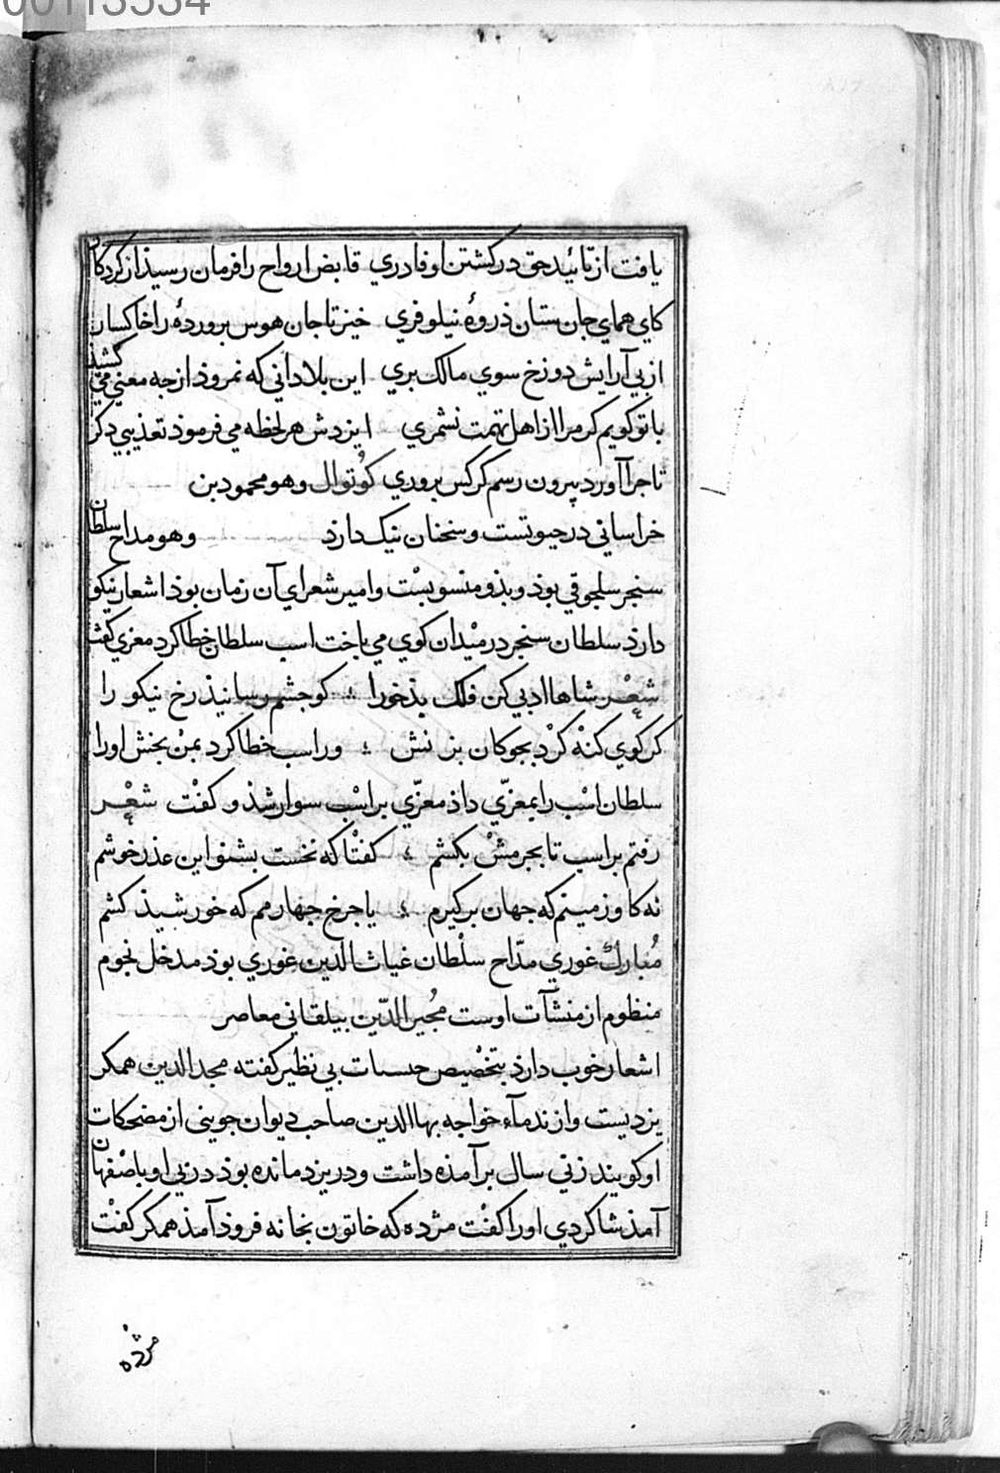 00113534
یافت از تائید حق در کشتن او فادری قابض ارواح را فرمان رسیذ از کردکار
کای همای جان ستان ذروهٔ نیلوفری خیز تا جان هوس پروردهٔ را خاکسار
از پی آرایش دوزخ سوی مالک بری این بلا دانی که نمروذ از چه معنی می کشیذ
با تو کویم کر مرا از اهل تهمت نشمری ایزدش هر لحظه می فرموذ تعذیبی دکر
تا چرا آورد بیرون رسم کرکس پروری کوتوال وهو محمود بن
خراسانی در حیوتست و سخنان نیک دارذ وهو مداح سلطان
سنجر سلجوقی بوذ و بذو منسوبست و امیر شعرای آن زمان بوذ اشعار نیکو
دارذ سلطان سنجر در میدان کوی می باخت اسب سلطان خطا کرد معزی کفت
شعر شاها ادبی کن فلک بذخو را کو چشم رسانیذ رخ نیکو را
کر کوی کنه کرد بچوکان بزنش ور اسب خطا کرد بمن بخش او را
سلطان اسب را بمعزی داذ معزی بر اسب سوار شذ و کفت شعر
رفتم بر اسب تا بجرمش بکشم کفتا که نخست بشنو این عذر خوشم
نه کاو زمینم که جهان برکیرم یا چرخ چهارمم که خورشیذ کشم
مبارک غوری مداح سلطان غیاث الدین غوری بوذ مدخل نجوم
منظوم از منشآت اوست مجیر الدین بیلقانی معاصر
اشعار خوب دارذ بتخصیص حسیات بی نظیر کفته مجد الدین همکر
یزدیست و از ندماء خواجه بها الدین صاحب دیوان جوینی از مضحکات
او کویند زنی سال برآمذه داشت و در یزد مانده بوذ در پی او باصفهان
آمذ شاکردی او را کفت مژده که خاتون بخانه فروذ آمذ همکر کفت
مژده